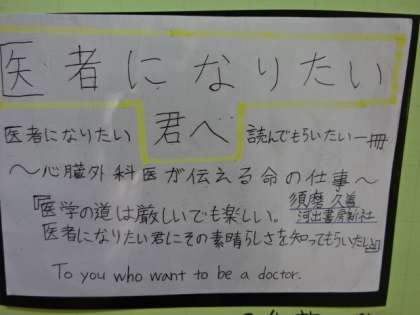 医者になりたい
君へ
医者になりたい 読んでもらいたい一冊
～心臓外科医が伝える命の仕事～
『医学の道は厳しいでも楽しい。
須磨久善
河出書房新社
医者になりたい君にその素晴らしさを知ってもらいたい』
To you who want to be a doctor.